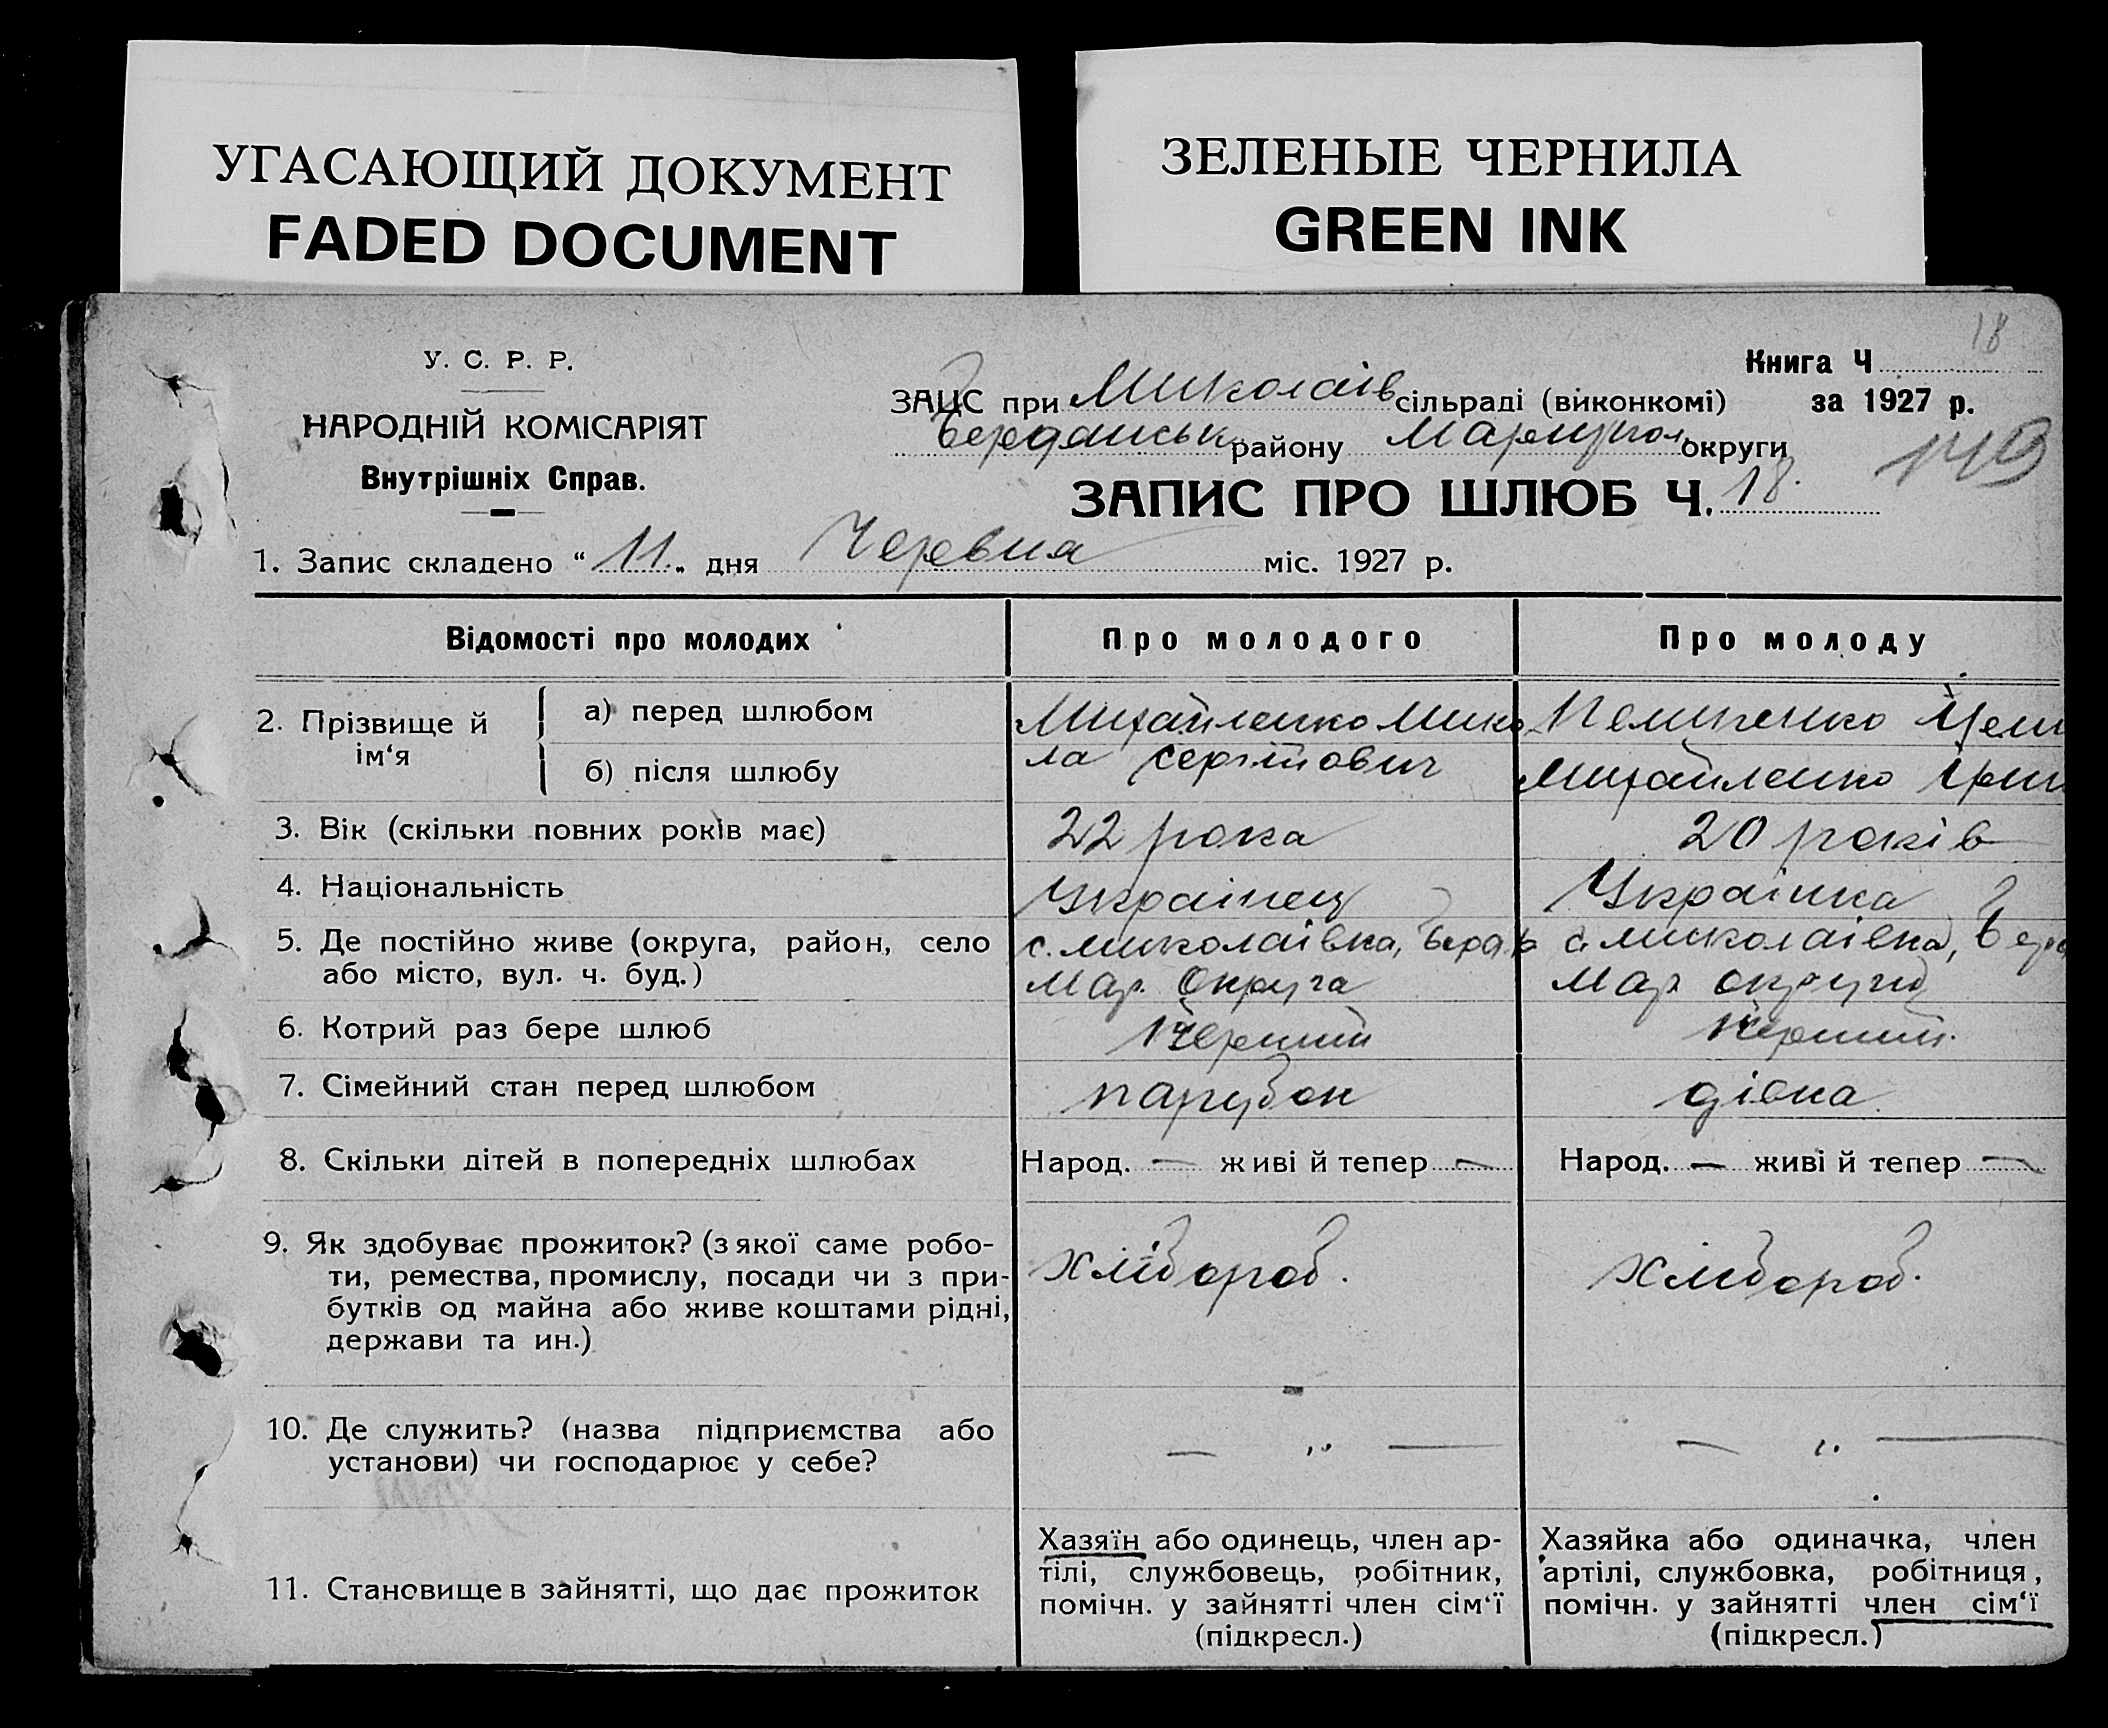 УГАСАЮЩИЙ ДОКУМЕНТ
FADED DOCUMENT
ЗЕЛЕНЫЕ ЧЕРНИЛА
GREEN INK
18
У. С. Р. Р.
НАРОДНІЙ КОМІСАРІЯТ
Внутрішніх Справ.
Книга Ч
ЗАЦС при Миколаїв сільраді (виконкомі) за 1927 р.
Бердянськ району Маріупол округи
149
ЗАПИС ПРО ШЛЮБ Ч. 18.
1. Запис складено “ 11 „ дня Червня міс. 1927 р.
Відомості про молодих
Про молодого
Про молоду
2. Прізвище й ім‘я
а) перед шлюбом
Михайленко Мико
б) після шлюбу
ла Сергійович
Михайленко Ірин
3. Вік (скільки повних років має)
22 рока
20 років
4. Національність
Українец
Українка
5. Де постійно живе (округа, район, село
або місто, вул. ч. буд.)
с. Миколаівка, Берд. р
Мар. Округа
с. Миколаівка, Берд
Мар округи
6. Котрий раз бере шлюб
Перший
Перший.
7. Сімейний стан перед шлюбом
парубок
дівка
8. Скільки дітей в попередніх шлюбах
Народ. — живі й тепер —
Народ. — живі й тепер —
9. Як здобуває прожиток? (з якої саме робо-
ти, ремества, промислу, посади чи з при-
бутків од майна або живе коштами рідні,
держави та ин.)
хлібороб.
хлібороб.
10. Де служить? (назва підприємства або
установи) чи господарює у себе?
— „ —
— „ —
11. Становище в зайнятті, що дає прожиток
Хазяїн або одинець, член ар-
тілі, службовець, робітник,
помічн. у зайнятті член сім‘ї
(підкресл.)
Хазяйка або одиначка, член
артілі, службовка, робітниця,
помічн. у зайнятті член сім‘ї
(підкресл.)